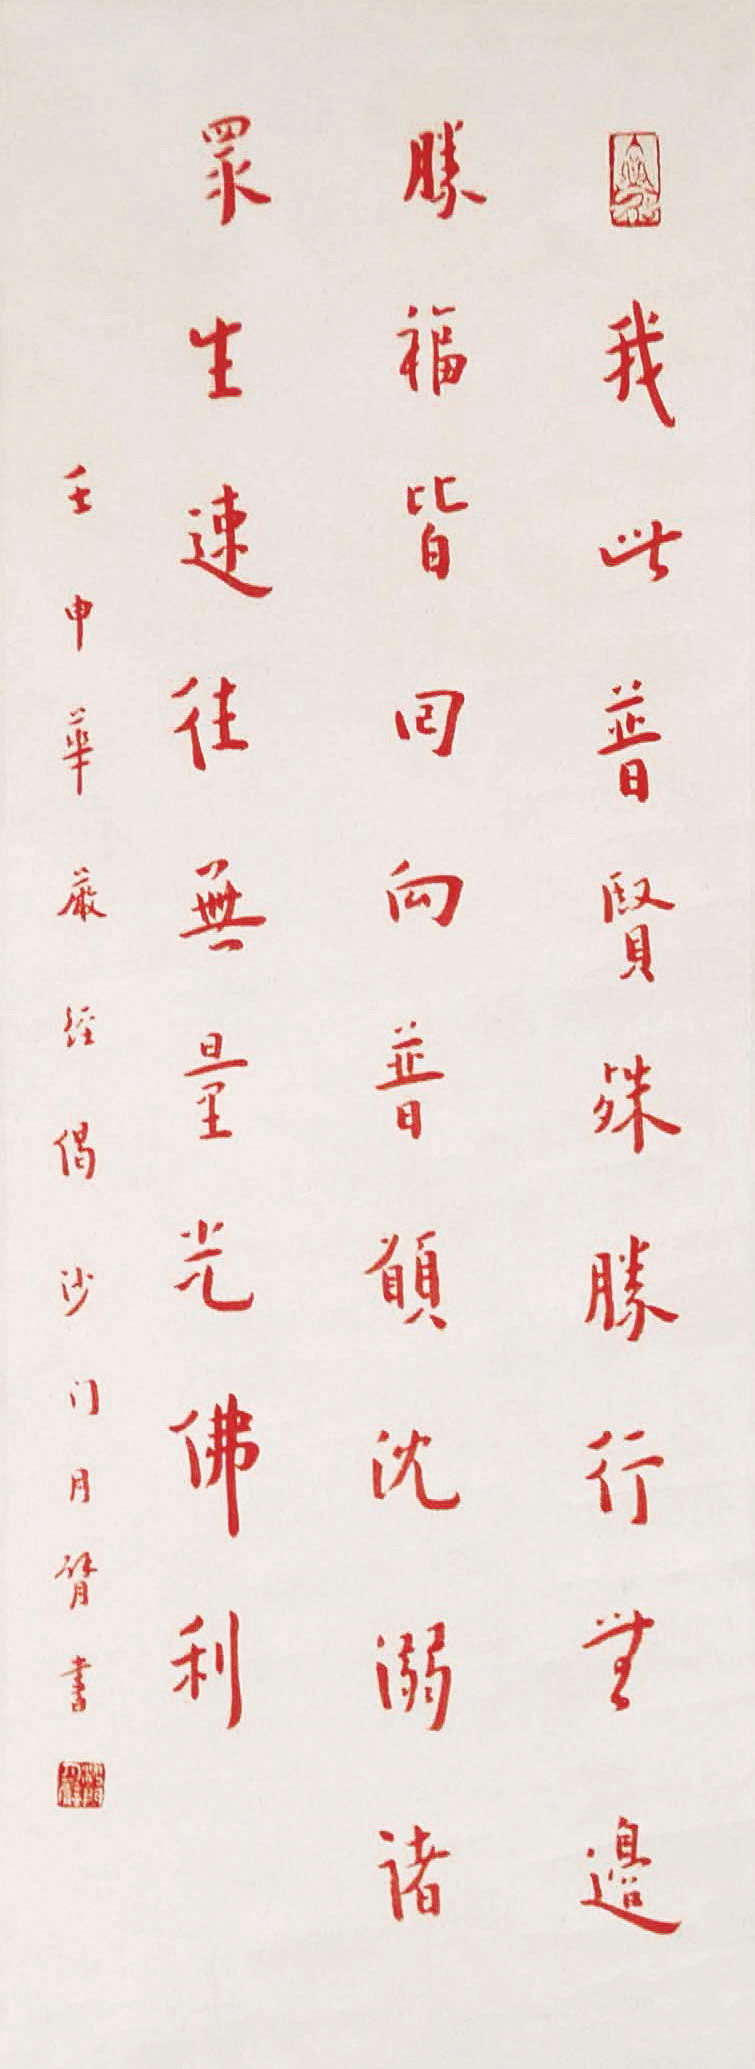 我此普賢殊勝行無邊
勝福皆回向普願沈溺諸
眾生速往無量光佛刹
壬申華嚴經偈沙门月臂書